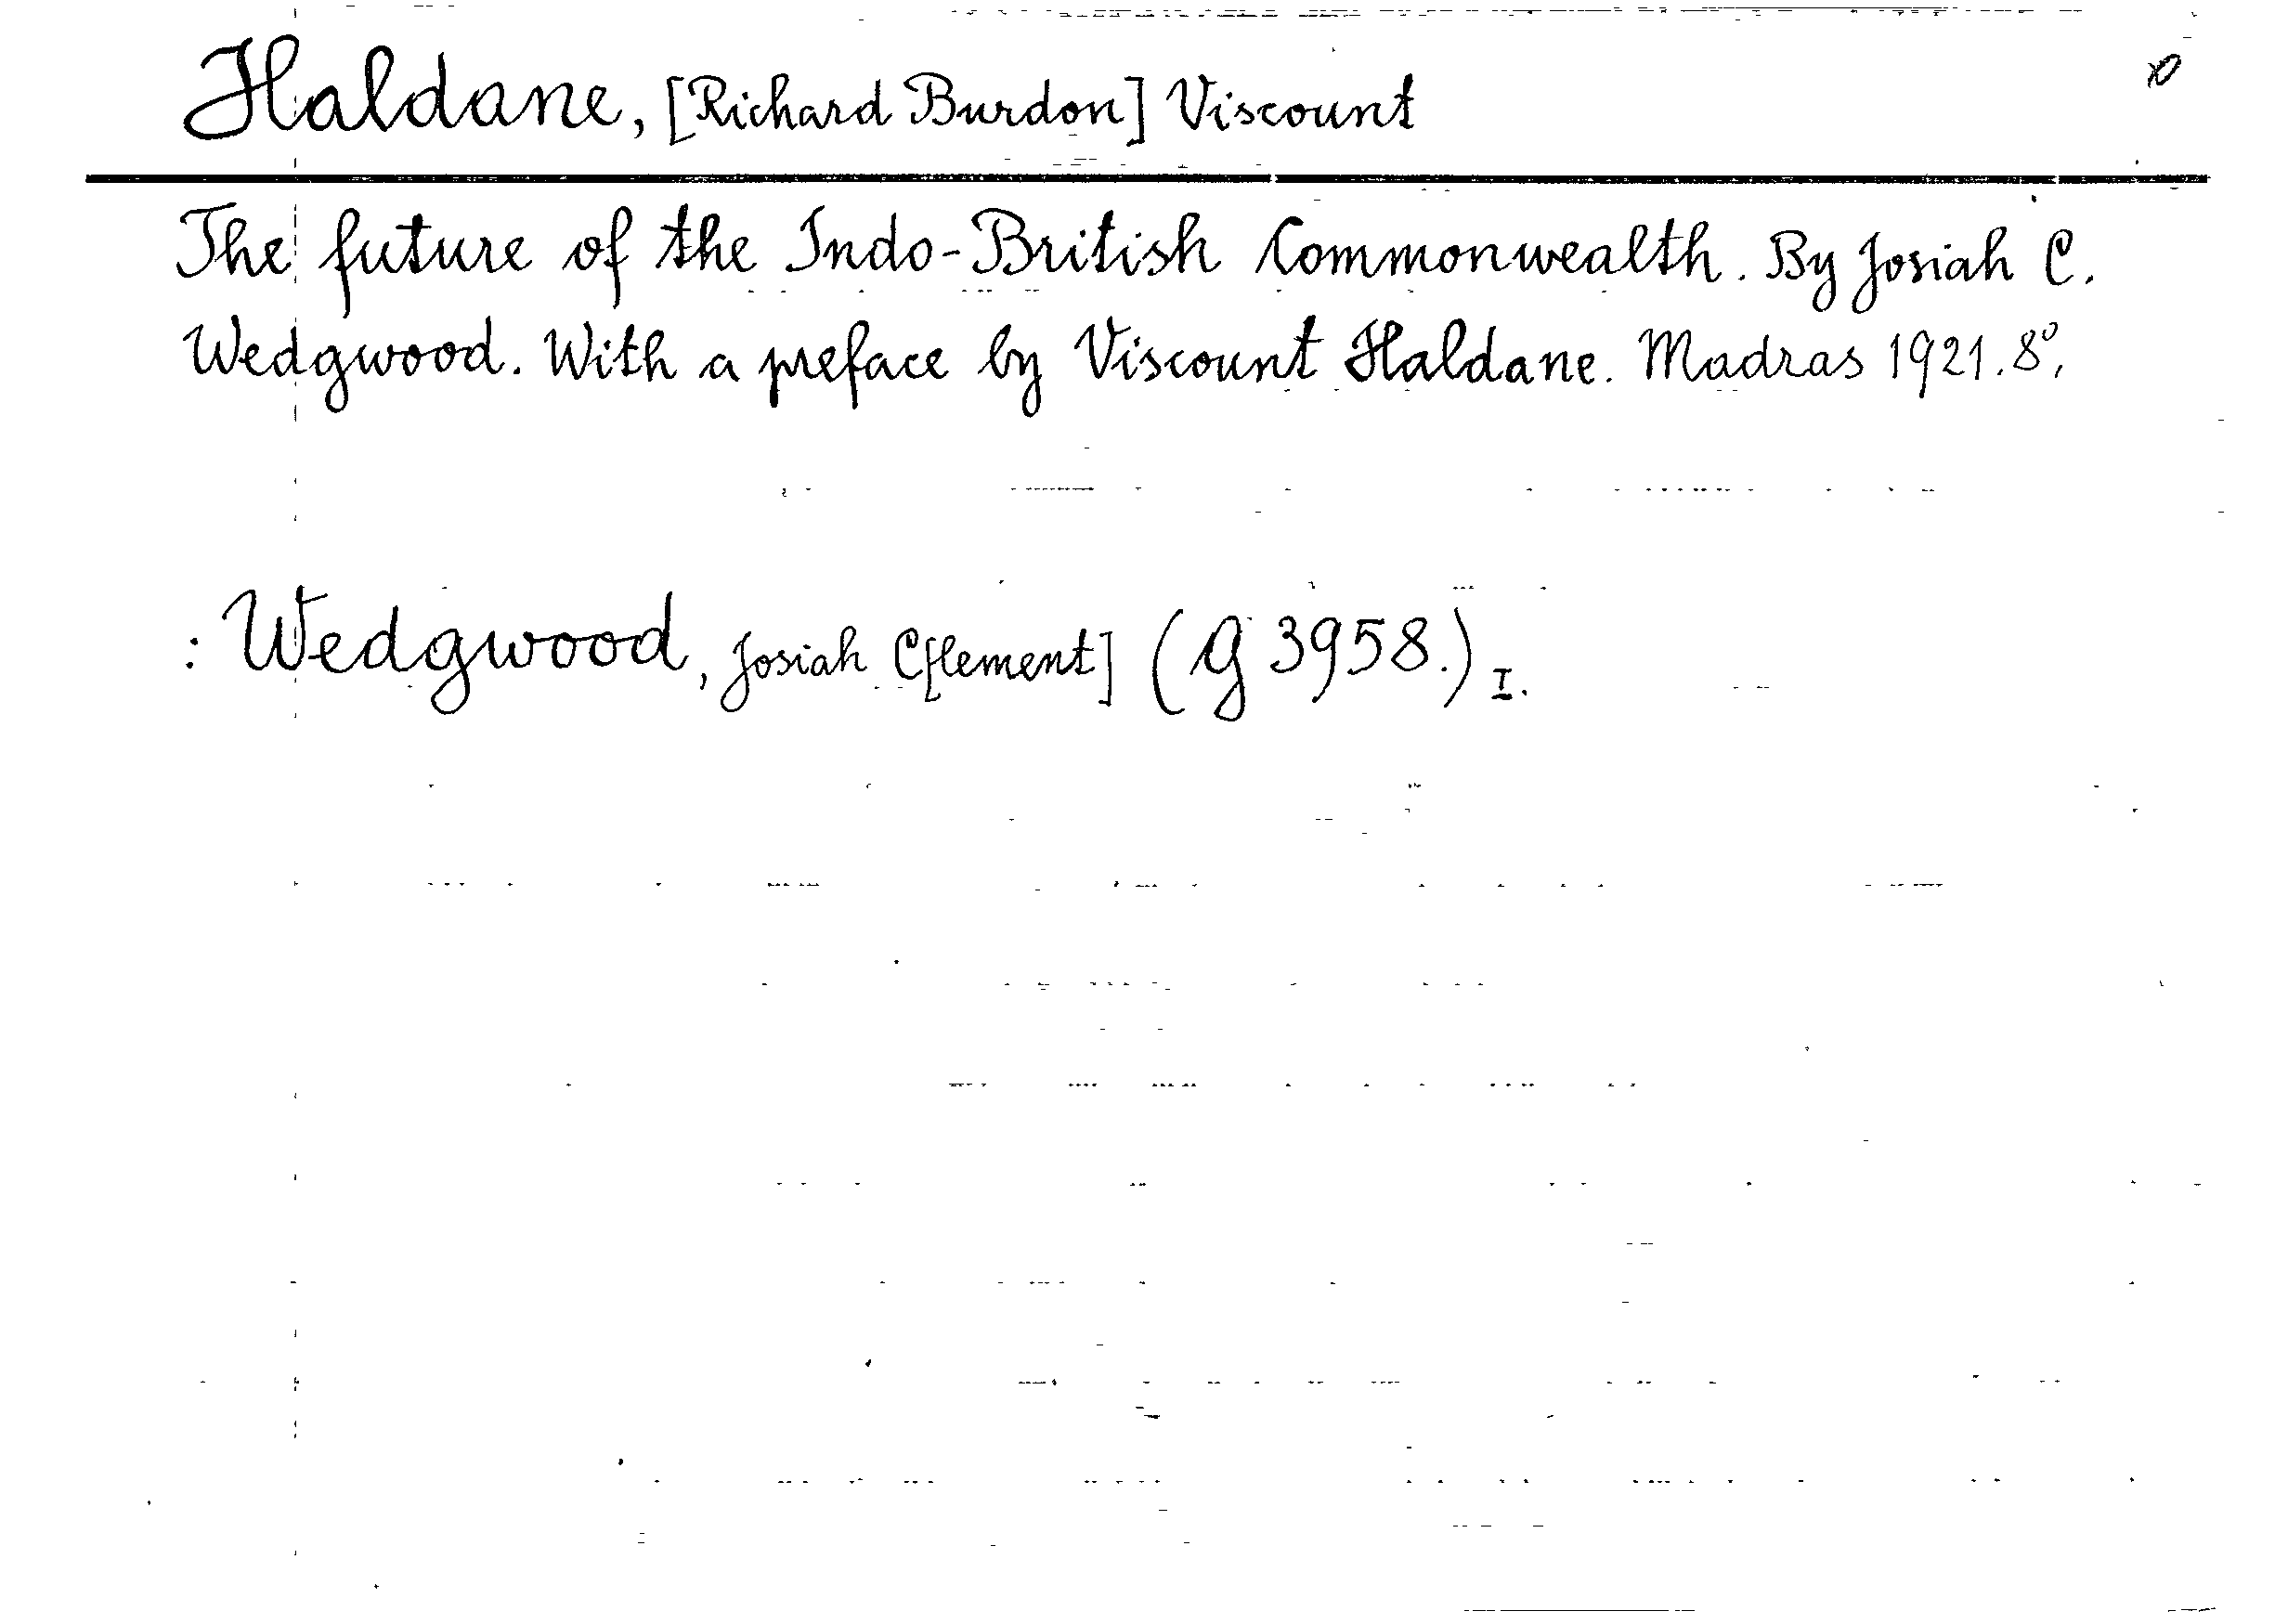 Haldane, [Richard Burdon] Viscount
The future of the Indo-British Commonwealth. By Josiah C.
Wedgwood. With a preface by Viscount Haldane. Madras 1921. 8°.
: Wedgwood, Josiah C[lement] (G 3958.) I.